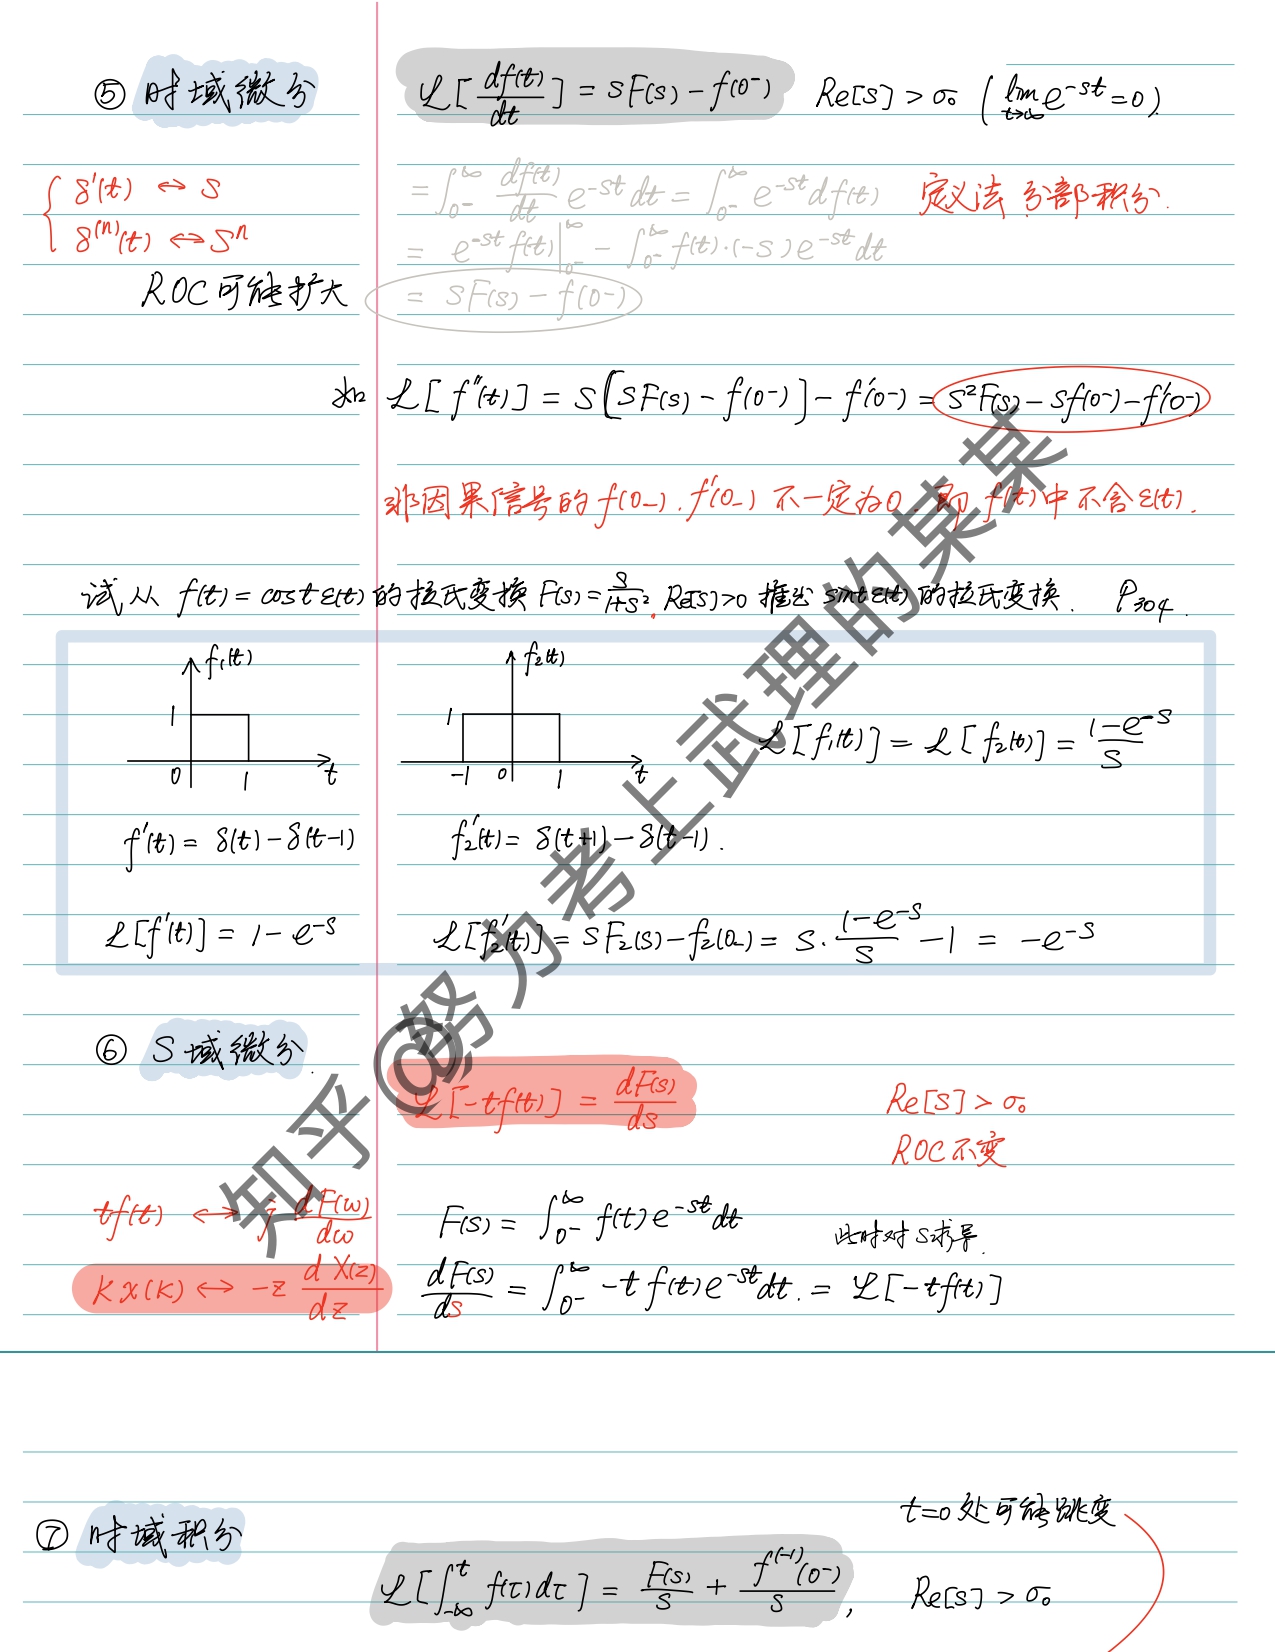 ⑤ 时域微分
ℒ[df(t)/dt] = sF(s) - f(0⁻)  Re[s] > σ₀ (lim t→∞ e^-st = 0).
{ δ'(t) ↔ s
δ⁽ⁿ⁾(t) ↔ sⁿ
ROC可能扩大
= ∫₀₋^∞ df(t)/dt e^-st dt = ∫₀₋^∞ e^-st df(t)  定义法 分部积分.
= e^-st f(t)|₀₋^∞ - ∫₀₋^∞ f(t)·(-s)e^-st dt
= sF(s) - f(0⁻)
如 ℒ[f''(t)] = s[sF(s) - f(0⁻)] - f'(0⁻) = s²F(s) - sf(0⁻) - f'(0⁻)
非因果信号的 f(0_). f'(0_) 不一定为0. 即 f(t)中不含ε(t).
试从 f(t) = cost ε(t)的拉氏变换 F(s) = s/(1+s²), Re[s]>0 推出 sintε(t)的拉氏变换. P304.
f₁(t)
1
0 1 t
f₂(t)
1
-1 0 1 t
ℒ[f₁(t)] = ℒ[f₂(t)] = (1-e^-s)/s
f'(t) = δ(t) - δ(t-1)
f₂'(t) = δ(t+1) - δ(t-1).
ℒ[f'(t)] = 1 - e^-s
ℒ[f₂'(t)] = sF₂(s) - f₂(0_) = s·(1-e^-s)/s - 1 = -e^-s
⑥ S域微分.
ℒ[-tf(t)] = dF(s)/ds
Re[s] > σ₀
ROC不变
tf(t) ↔ j dF(ω)/dω
F(s) = ∫₀₋^∞ f(t)e^-st dt
此时对S求导.
kx(k) ↔ -z dX(z)/dz
dF(s)/ds = ∫₀₋^∞ -t f(t)e^-st dt. = ℒ[-tf(t)]
知乎@努力考上武理的某某
t=0处可能跳变
⑦ 时域积分
ℒ[∫₋∞^t f(τ)dτ] = F(s)/s + f⁽⁻¹⁾(0⁻)/s, Re[s] > σ₀